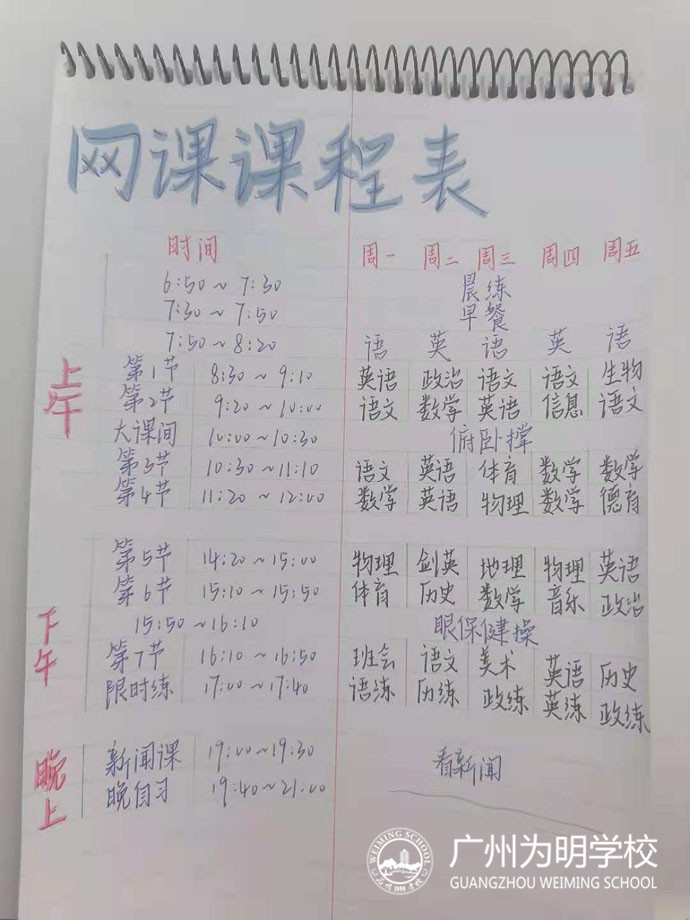 网课课程表
时间 周一 周二 周三 周四 周五
6:50~7:30 晨练
7:30~7:50 早餐
7:50~8:20 语 英 语 英 语
上午
第1节 8:30~9:10 英语 政治 语文 语文 生物
第2节 9:20~10:00 语文 数学 英语 信息 语文
大课间 10:00~10:30 俯卧撑
第3节 10:30~11:10 语文 英语 体育 数学 数学
第4节 11:20~12:00 数学 英语 物理 数学 德育
下午
第5节 14:20~15:00 物理 剑英 地理 物理 英语
第6节 15:10~15:50 体育 历史 数学 音乐 政治
15:50~16:10 眼保健操
第7节 16:10~16:50 班会 语文 美术 英语 历史
限时练 17:00~17:40 语练 历练 政练 英练 政练
晚上
新闻课 19:00~19:30 看新闻
晚自习 19:40~21:00
WEIMING SCHOOL
广州为明学校
GUANGZHOU WEIMING SCHOOL